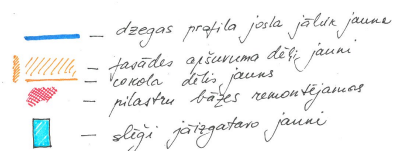 – dzegas profila josla jāliek jauna
– fasādes apšuvuma dēļi jauni
– cokola dēlis jauns
– pilastru bāzes remontējamas
– slēģi jāizgatavo jauni